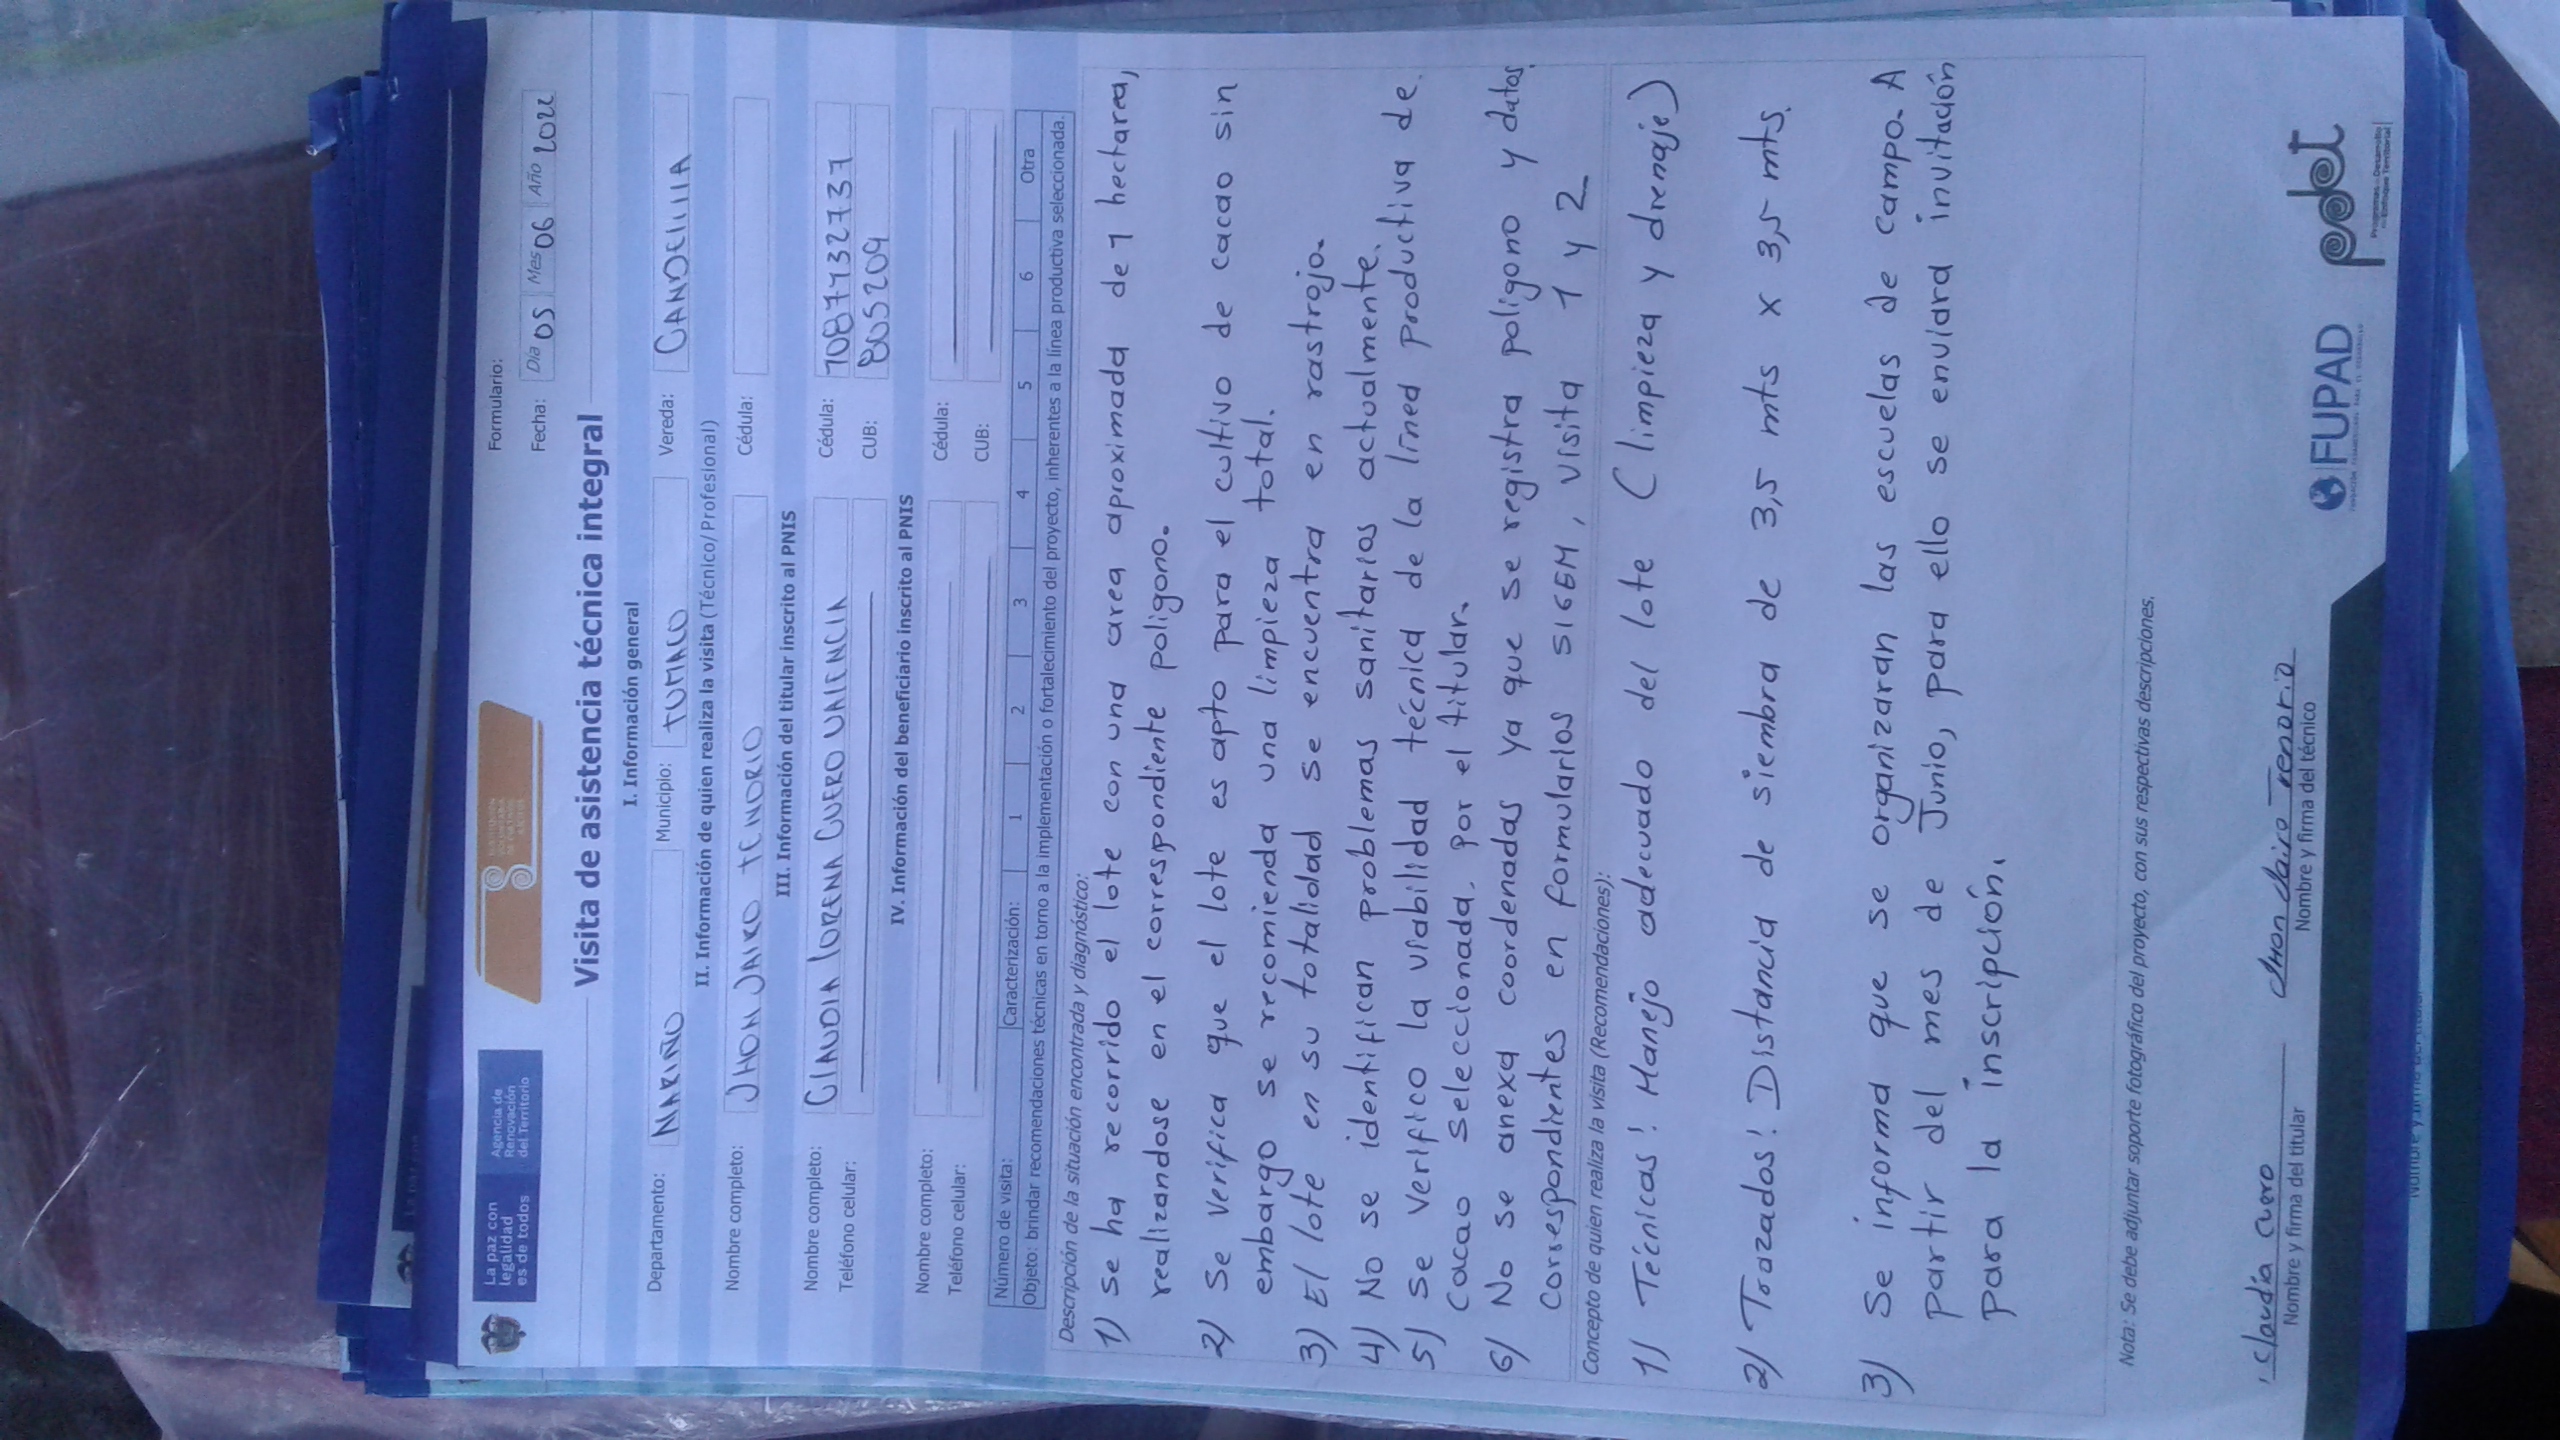 La paz con
legalidad
es de todos
Agencia de
Renovación
del Territorio
Formulario:
Fecha: Día 05 Mes 06 Año 2022
Visita de asistencia técnica integral
I. Información general
Departamento: NARIÑO Municipio: TUMACO Vereda: CANDELILLA
II. Información de quien realiza la visita (Técnico/ Profesional)
Nombre completo: JHON JAIRO TENORIO Cédula:
III. Información del titular inscrito al PNIS
Nombre completo: CLAUDIA LORENA CUERO VALENCIA Cédula: 1087132737
Teléfono celular: CUB: 805209
IV. Información del beneficiario inscrito al PNIS
Nombre completo: Cédula:
Teléfono celular: CUB:
Número de visita: Caracterización: 1 2 3 4 5 6 Otra
Objeto: brindar recomendaciones técnicas en torno a la implementación o fortalecimiento del proyecto, inherentes a la línea productiva seleccionada.
Descripción de la situación encontrada y diagnóstico:
1) Se ha recorrido el lote con una area aproximada de 1 hectarea,
realizandose en el correspondiente poligono.
2) Se verifica que el lote es apto para el cultivo de cacao sin
embargo se recomienda una limpieza total.
3) El lote en su totalidad se encuentra en rastrojo.
4) No se identifican problemas sanitarios actualmente.
5) Se verifico la viabilidad técnica de la línea productiva de
Cacao seleccionada. Por el titular.
6) No se anexa coordenadas ya que se registra poligono y datos
correspondientes en formularios SIGEM, visita 1 y 2
Concepto de quien realiza la visita (Recomendaciones):
1) Técnicas: Manejo adecuado del lote (limpieza y drenaje)
2) Trazados: Distancia de siembra de 3,5 mts x 3,5 mts.
3) Se informa que se organizaran las escuelas de campo. A
partir del mes de Junio, para ello se enviara invitación
para la inscripción.
Nota: Se debe adjuntar soporte fotográfico del proyecto, con sus respectivas descripciones.
Claudia Cuero Jhon Jairo Tenorio
Nombre y firma del titular Nombre y firma del técnico
FUPAD
pdet
Programas de Desarrollo
con Enfoque Territorial